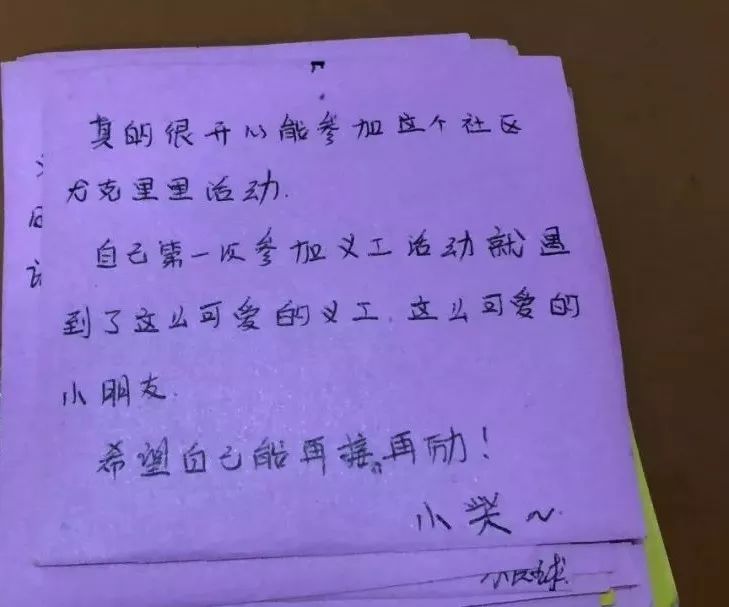 真的很开心能参加这个社区
尤克里里活动.
自己第一次参加义工活动就遇
到了这么可爱的义工.这么可爱的
小朋友.
希望自己能再接再励!